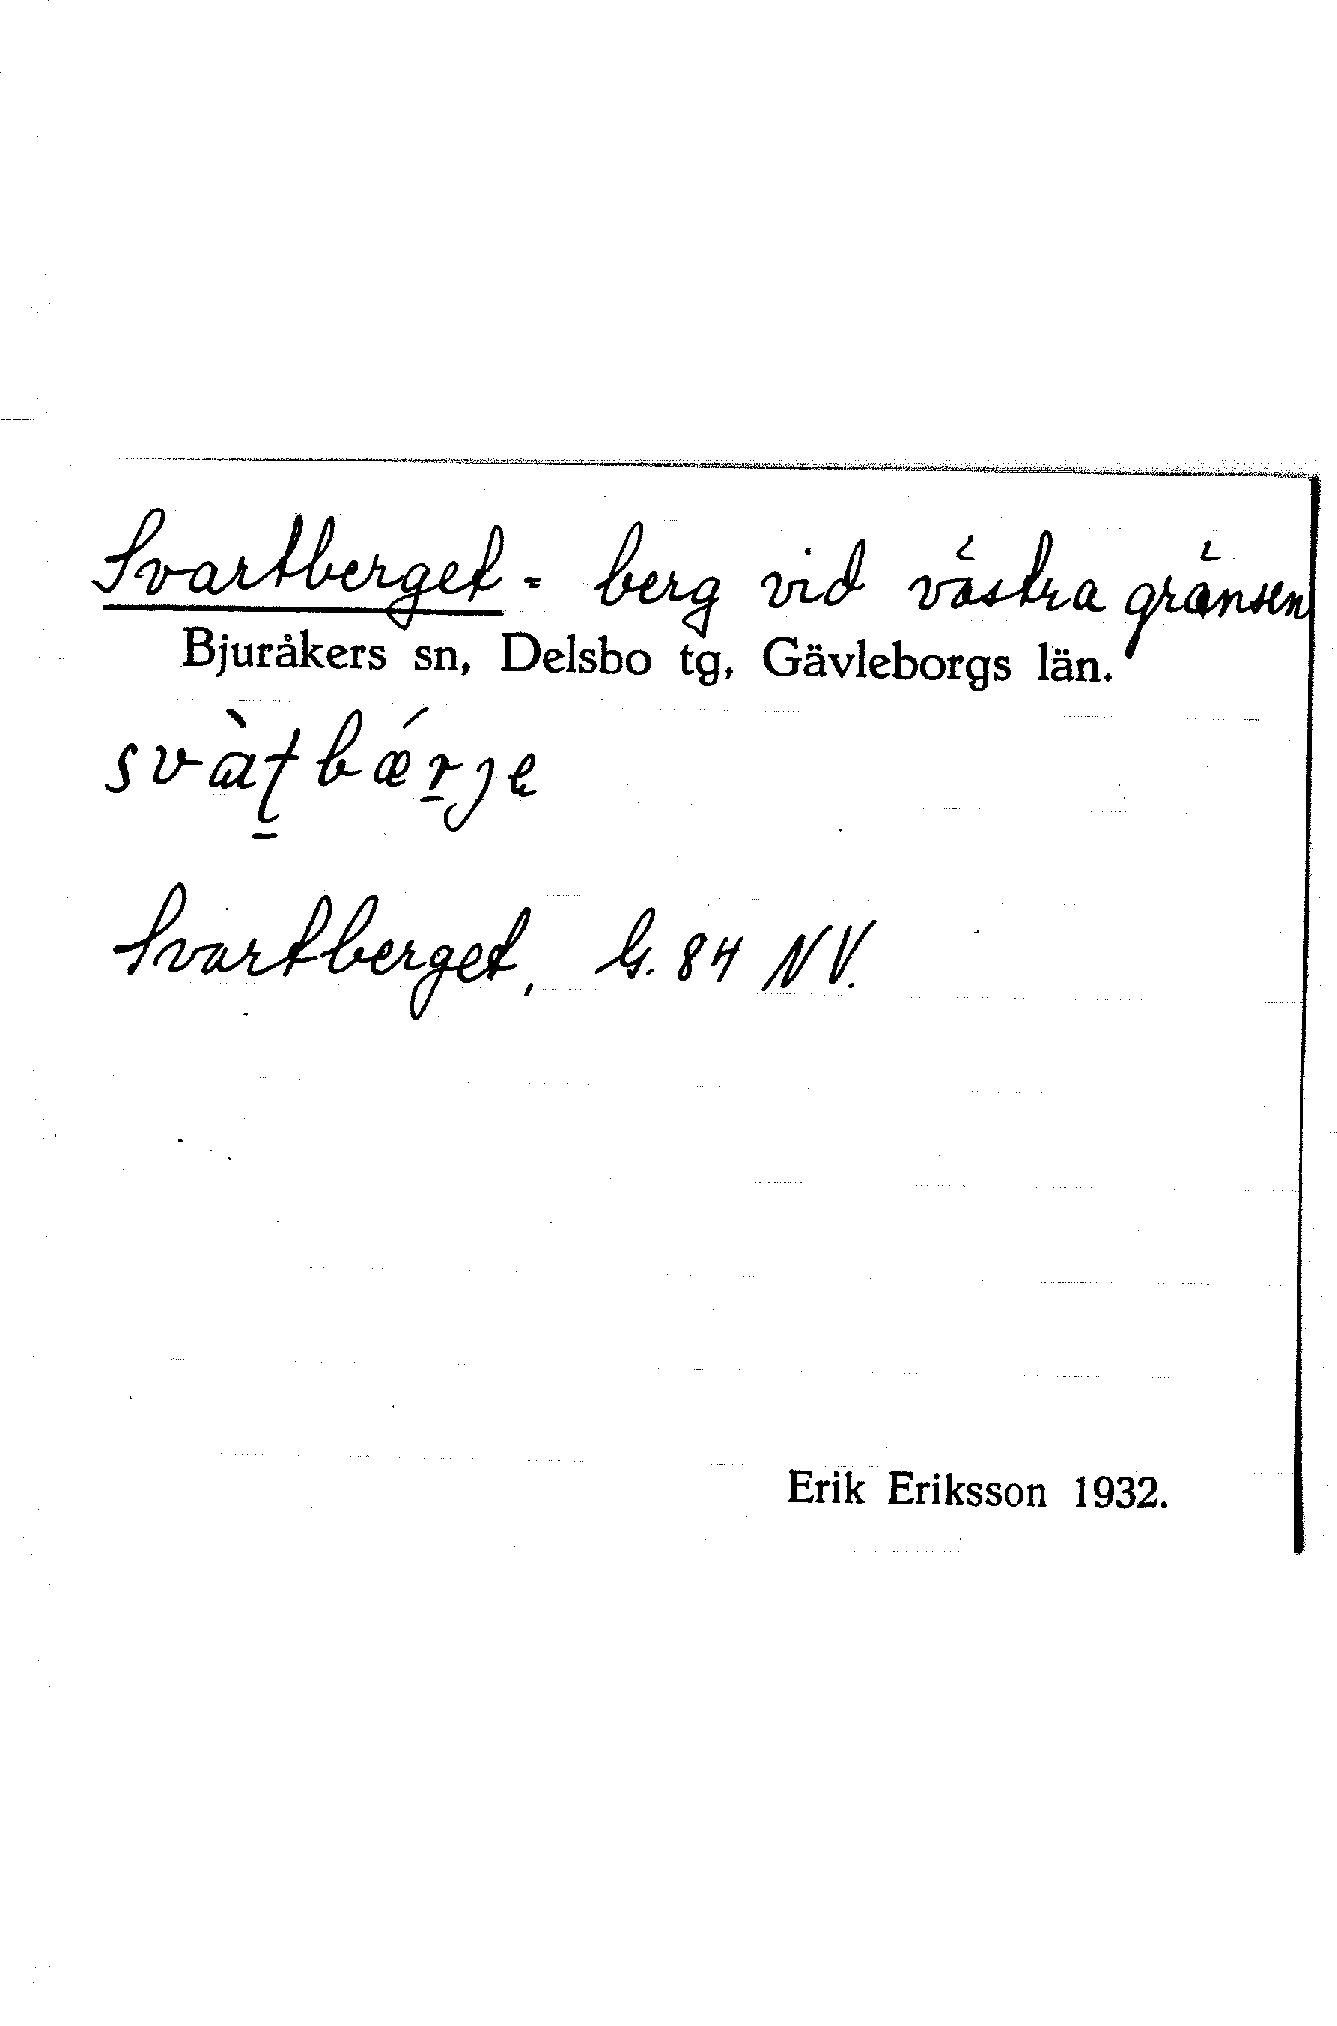 Svartberget - berg vid västra gränsen
Bjuråkers sn, Delsbo tg, Gävleborgs län.
svàṯbǽṟje
Svartberget, G. 84 NV.
Erik Eriksson 1932.